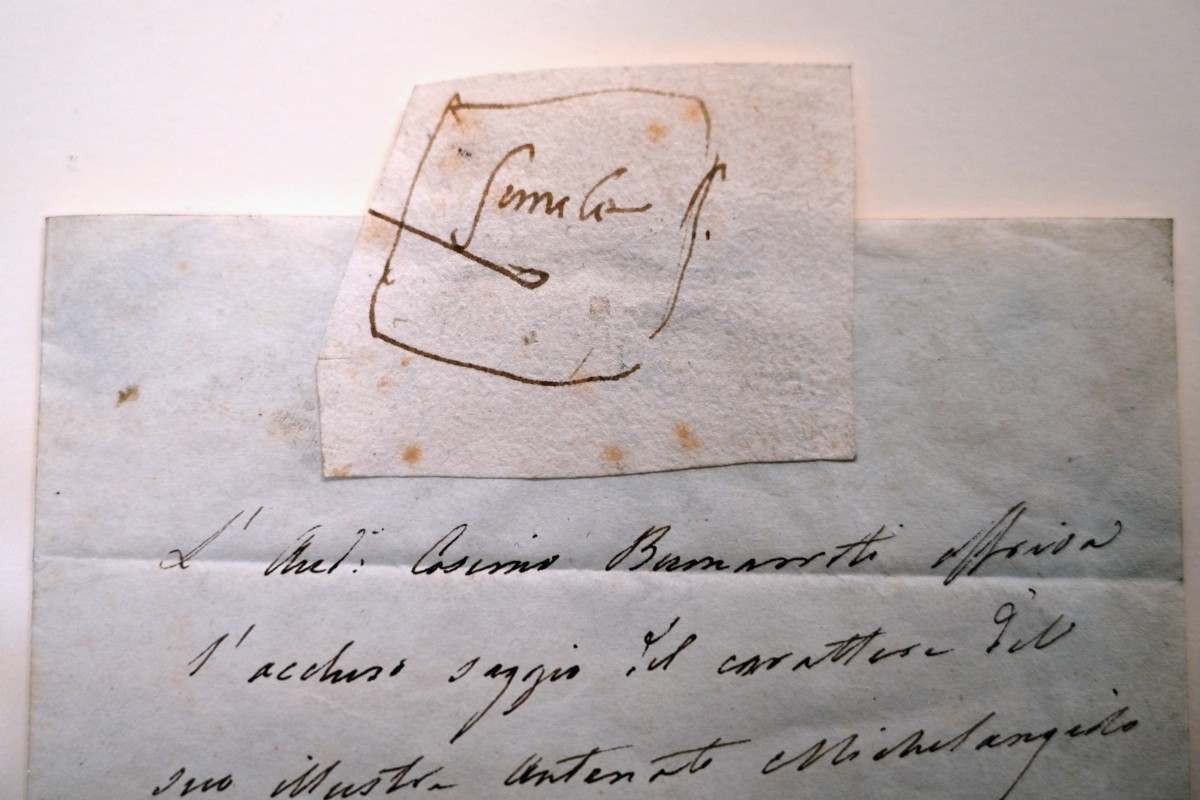 L' Aud: Cosimo Buonarroti offriva
l' accluso saggio del carattere del
suo illustre Antenato Michelangelo